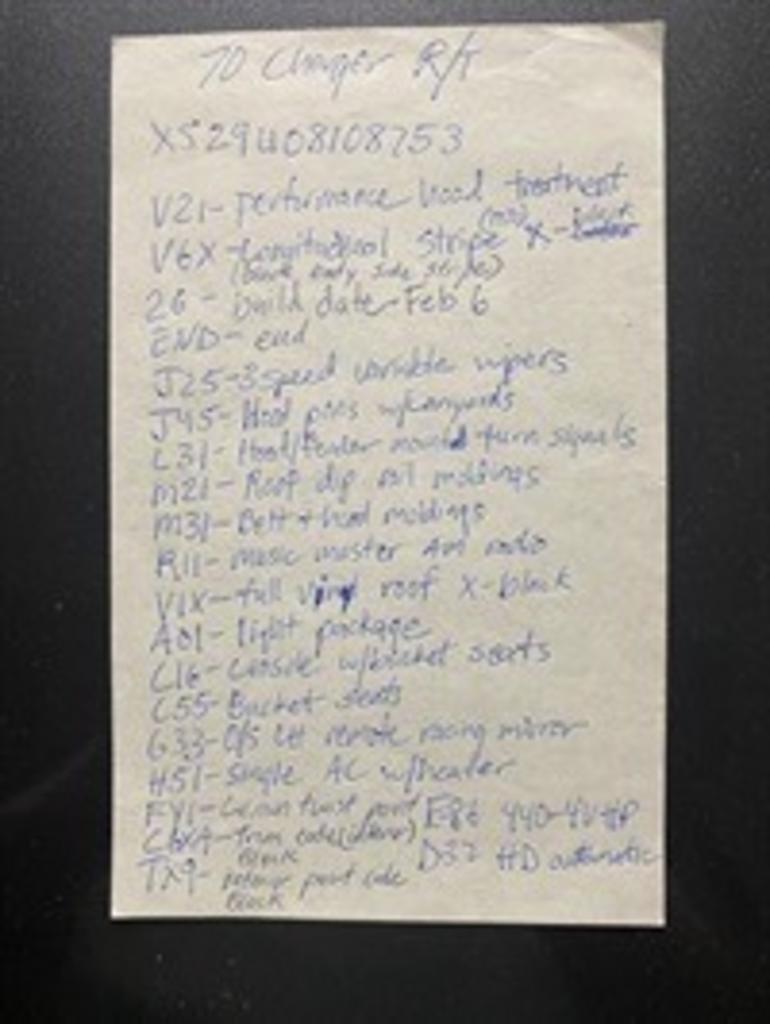 70 Charger R/T
XS29U08108753
V21- performance hood treatment
V6X- Longitudinal stripe X-
(black body side stripes)
26 - build date- Feb 6
END- end
J25-3 speed variable wipers
J45- Hood pins w/lanyards
L31- Hood/Fender mound turn signals
M21- Roof dip rail moldings
M31- Belt + hood moldings
R11- music master AM radio
V1X- full vinyl roof X-black
A01- light package
C16- console w/bucket seats
C55- Bucket seats
G33- O/S LH remote racing mirror
H51- single AC w/heater
FY1- paint E86 440-4V-HP
C6XA- Trim code (interior)
Black D32 HD automatic
TX9- paint code
Black